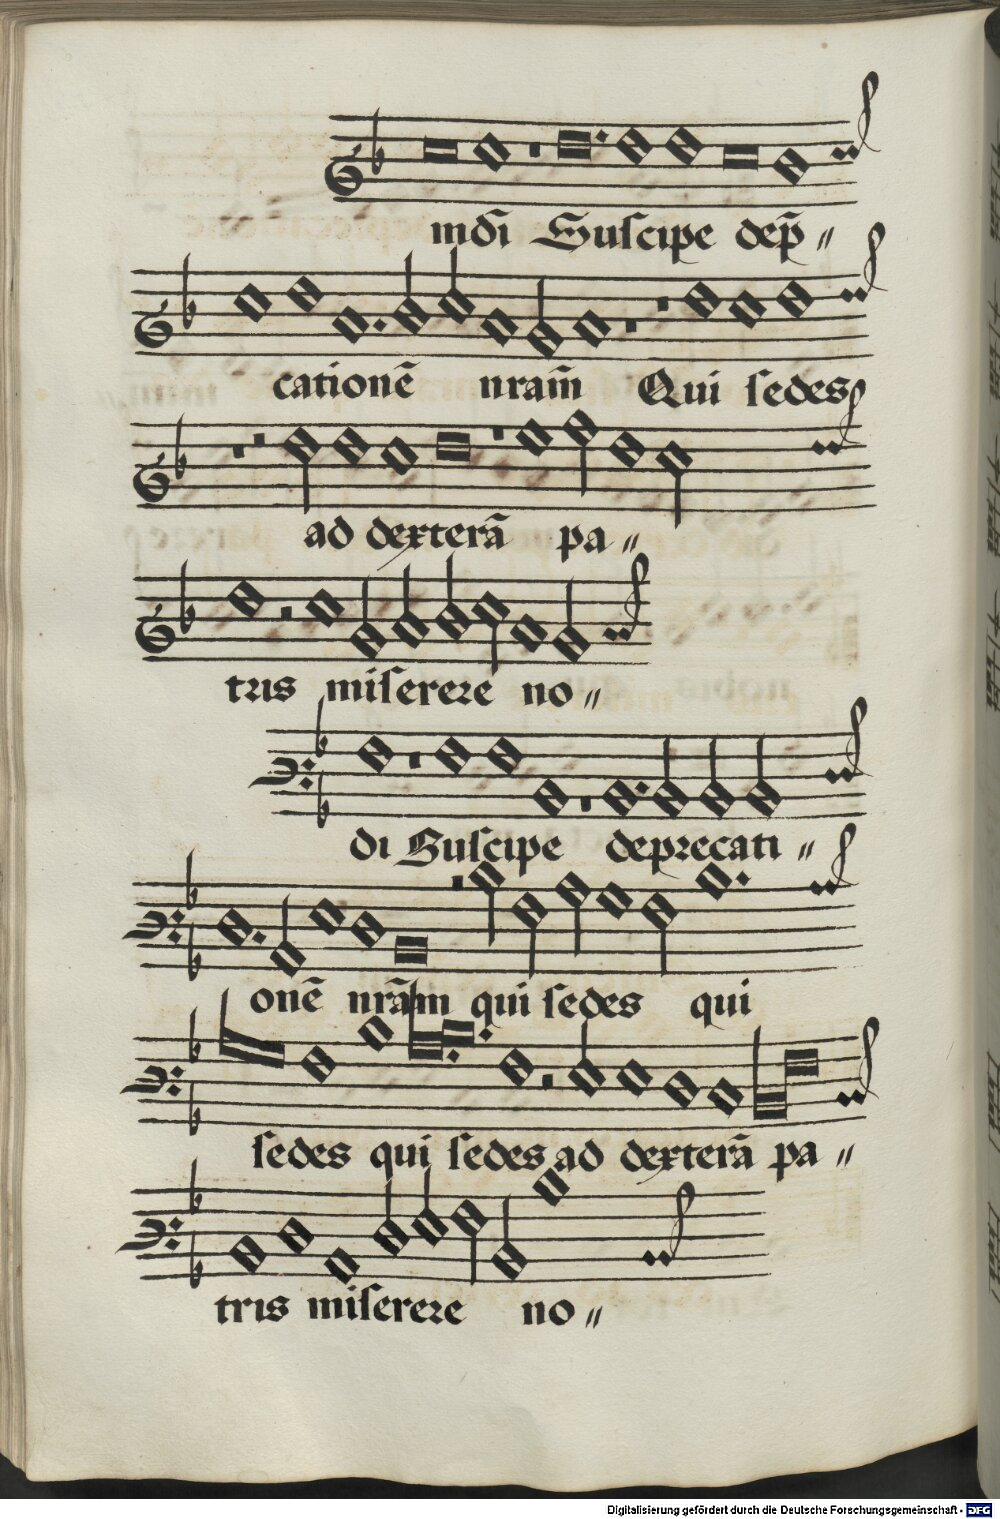 mdi Suſcipe dep̃〃
cationē nram̄ Qui ſedes
ad dexterā pa〃
tris miſerere no〃
di Suſcipe deprecati〃
onē nrām qui ſedes qui
ſedes qui ſedes ad dexterā pa〃
tris miſerere no〃
Digitalisierung gefördert durch die Deutsche Forschungsgemeinschaft - DFG